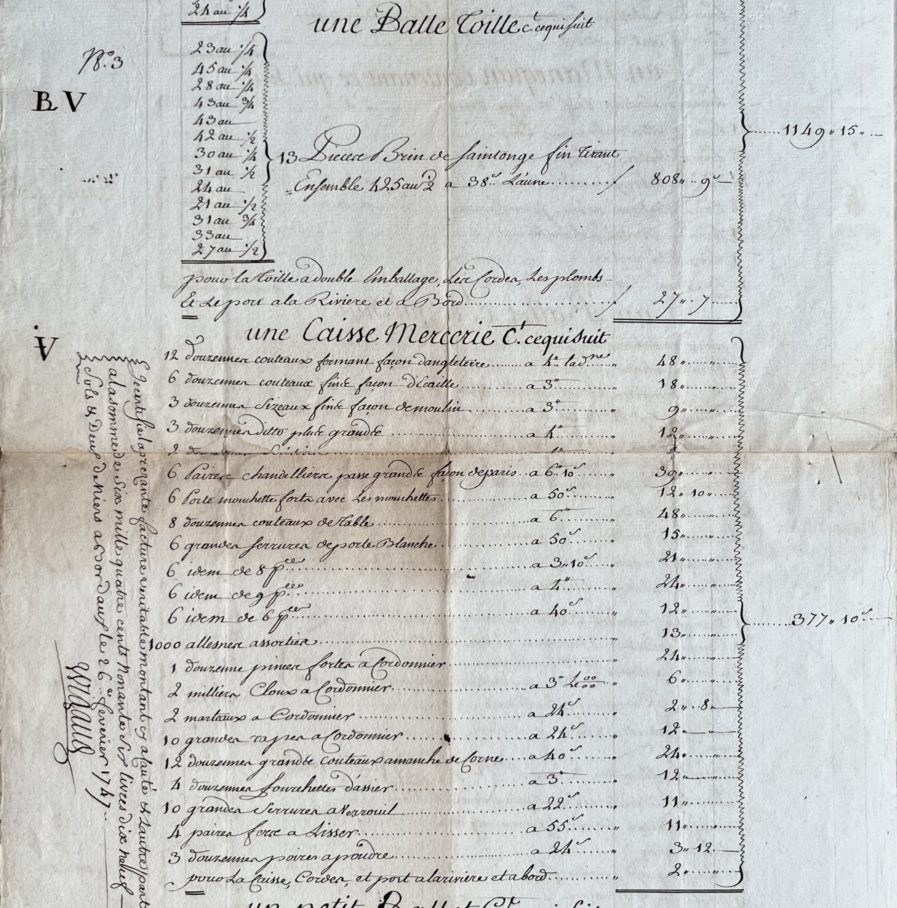 24 au 1/4
une Balle Toille Ct. cequisuit
No. 3
BL V
23 au 1/4
45 au 1/4
28 au 1/4
43 au 3/4
43 au
42 au 1/2
30 au 1/4
31 au 1/2
24 au
21 au 1/2
31 au 3/4
33 au
27 au 1/2
13 Pieces Brin de Saintonge fin tirant
Ensemble 425 au 1/2 a 38s L'aune 808 " 9s
1149 " 15 "
pour la toille a double Emballage, Les Cordes, Les plombs
Et Le port a la Riviere et a Bord 27 " 7
V
une Caisse Mercerie Ct. cequisuit
12 douzennes couteaux fermant façon dangleterre a 4tt la dne 48 "
6 douzennes couteaux fins façon d'Ecaille a 3tt 18 "
3 douzennes Sizeaux fins façon de moulin a 3tt 9 "
3 douzennes ditto plus grands a 4tt 12 "
6 Paires chandelliers passe grands façon de paris a 6tt 10s 39 "
6 Porte mouchettes forts avec Les mouchettes a 50s 12 " 10 "
8 douzennes couteaux de table a 6tt 48 "
6 grandes serrures de porte Blanche a 50s 15 "
6 idem de 8 pces a 3tt 10s 21 "
6 idem de 9 pces a 4tt 24 "
6 idem de 6 pces a 40s 12 "
1000 allesnes assorties 13 "
1 douzenne pinces fortes a Cordonnier 24 "
2 milliers Cloux a Cordonnier a 3tt Le 00/00 6 "
2 marteaux a Cordonnier a 24s 2 " 8 "
10 grandes rapes a Cordonnier a 24s 12 "
12 douzennes grands Couteaux a manche de Corne a 40s 24 "
4 douzennes fourchettes d'acier a 3tt 12 "
10 grandes Serrures a Verrouil a 22s 11 "
4 paires fers a Lisser a 55s 11 "
3 douzennes poires a poudre a 24s 3 " 12
pour La Caisse, Cordes, et port a la riviere et a bord 2 "
377 " 10s
Je certifie la prezante facture veritable montant
a la somme de Six mille quatre cents Nonante Six livres dix neuf
Sols & Deux deniers a Bordeaux le 26e fevrier 1747
un petit Ballot Ct.